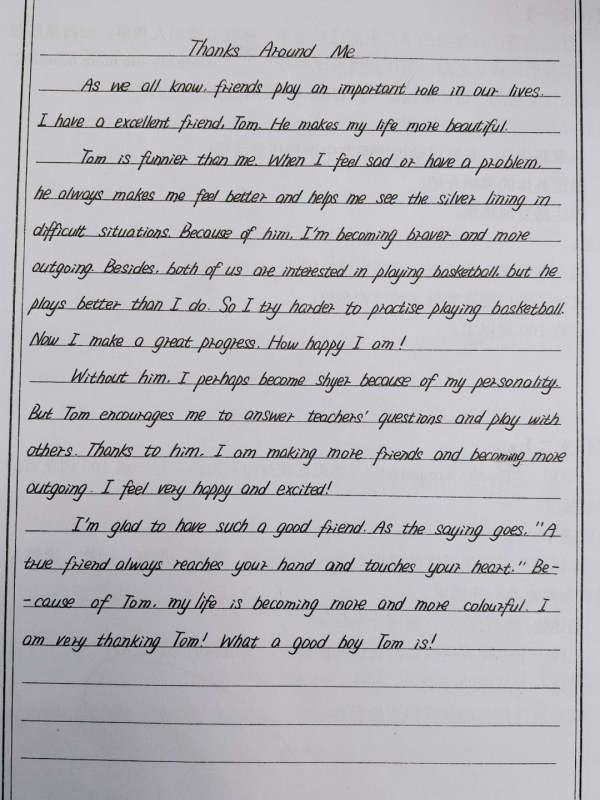 Thanks Around Me
As we all know, friends play an important role in our lives.
I have a excellent friend, Tom. He makes my life more beautiful.
Tom is funnier than me. When I feel sad or have a problem,
he always makes me feel better and helps me see the silver lining in
difficult situations. Because of him, I'm becoming braver and more
outgoing. Besides, both of us are interested in playing basketball, but he
plays better than I do. So I try harder to practise playing basketball.
Now I make a great progress. How happy I am!
Without him, I perhaps become shyer because of my personality.
But Tom encourages me to answer teachers' questions and play with
others. Thanks to him, I am making more friends and becoming more
outgoing. I feel very happy and excited!
I'm glad to have such a good friend. As the saying goes, "A
true friend always reaches your hand and touches your heart." Be-
-cause of Tom, my life is becoming more and more colourful. I
am very thanking Tom! What a good boy Tom is!